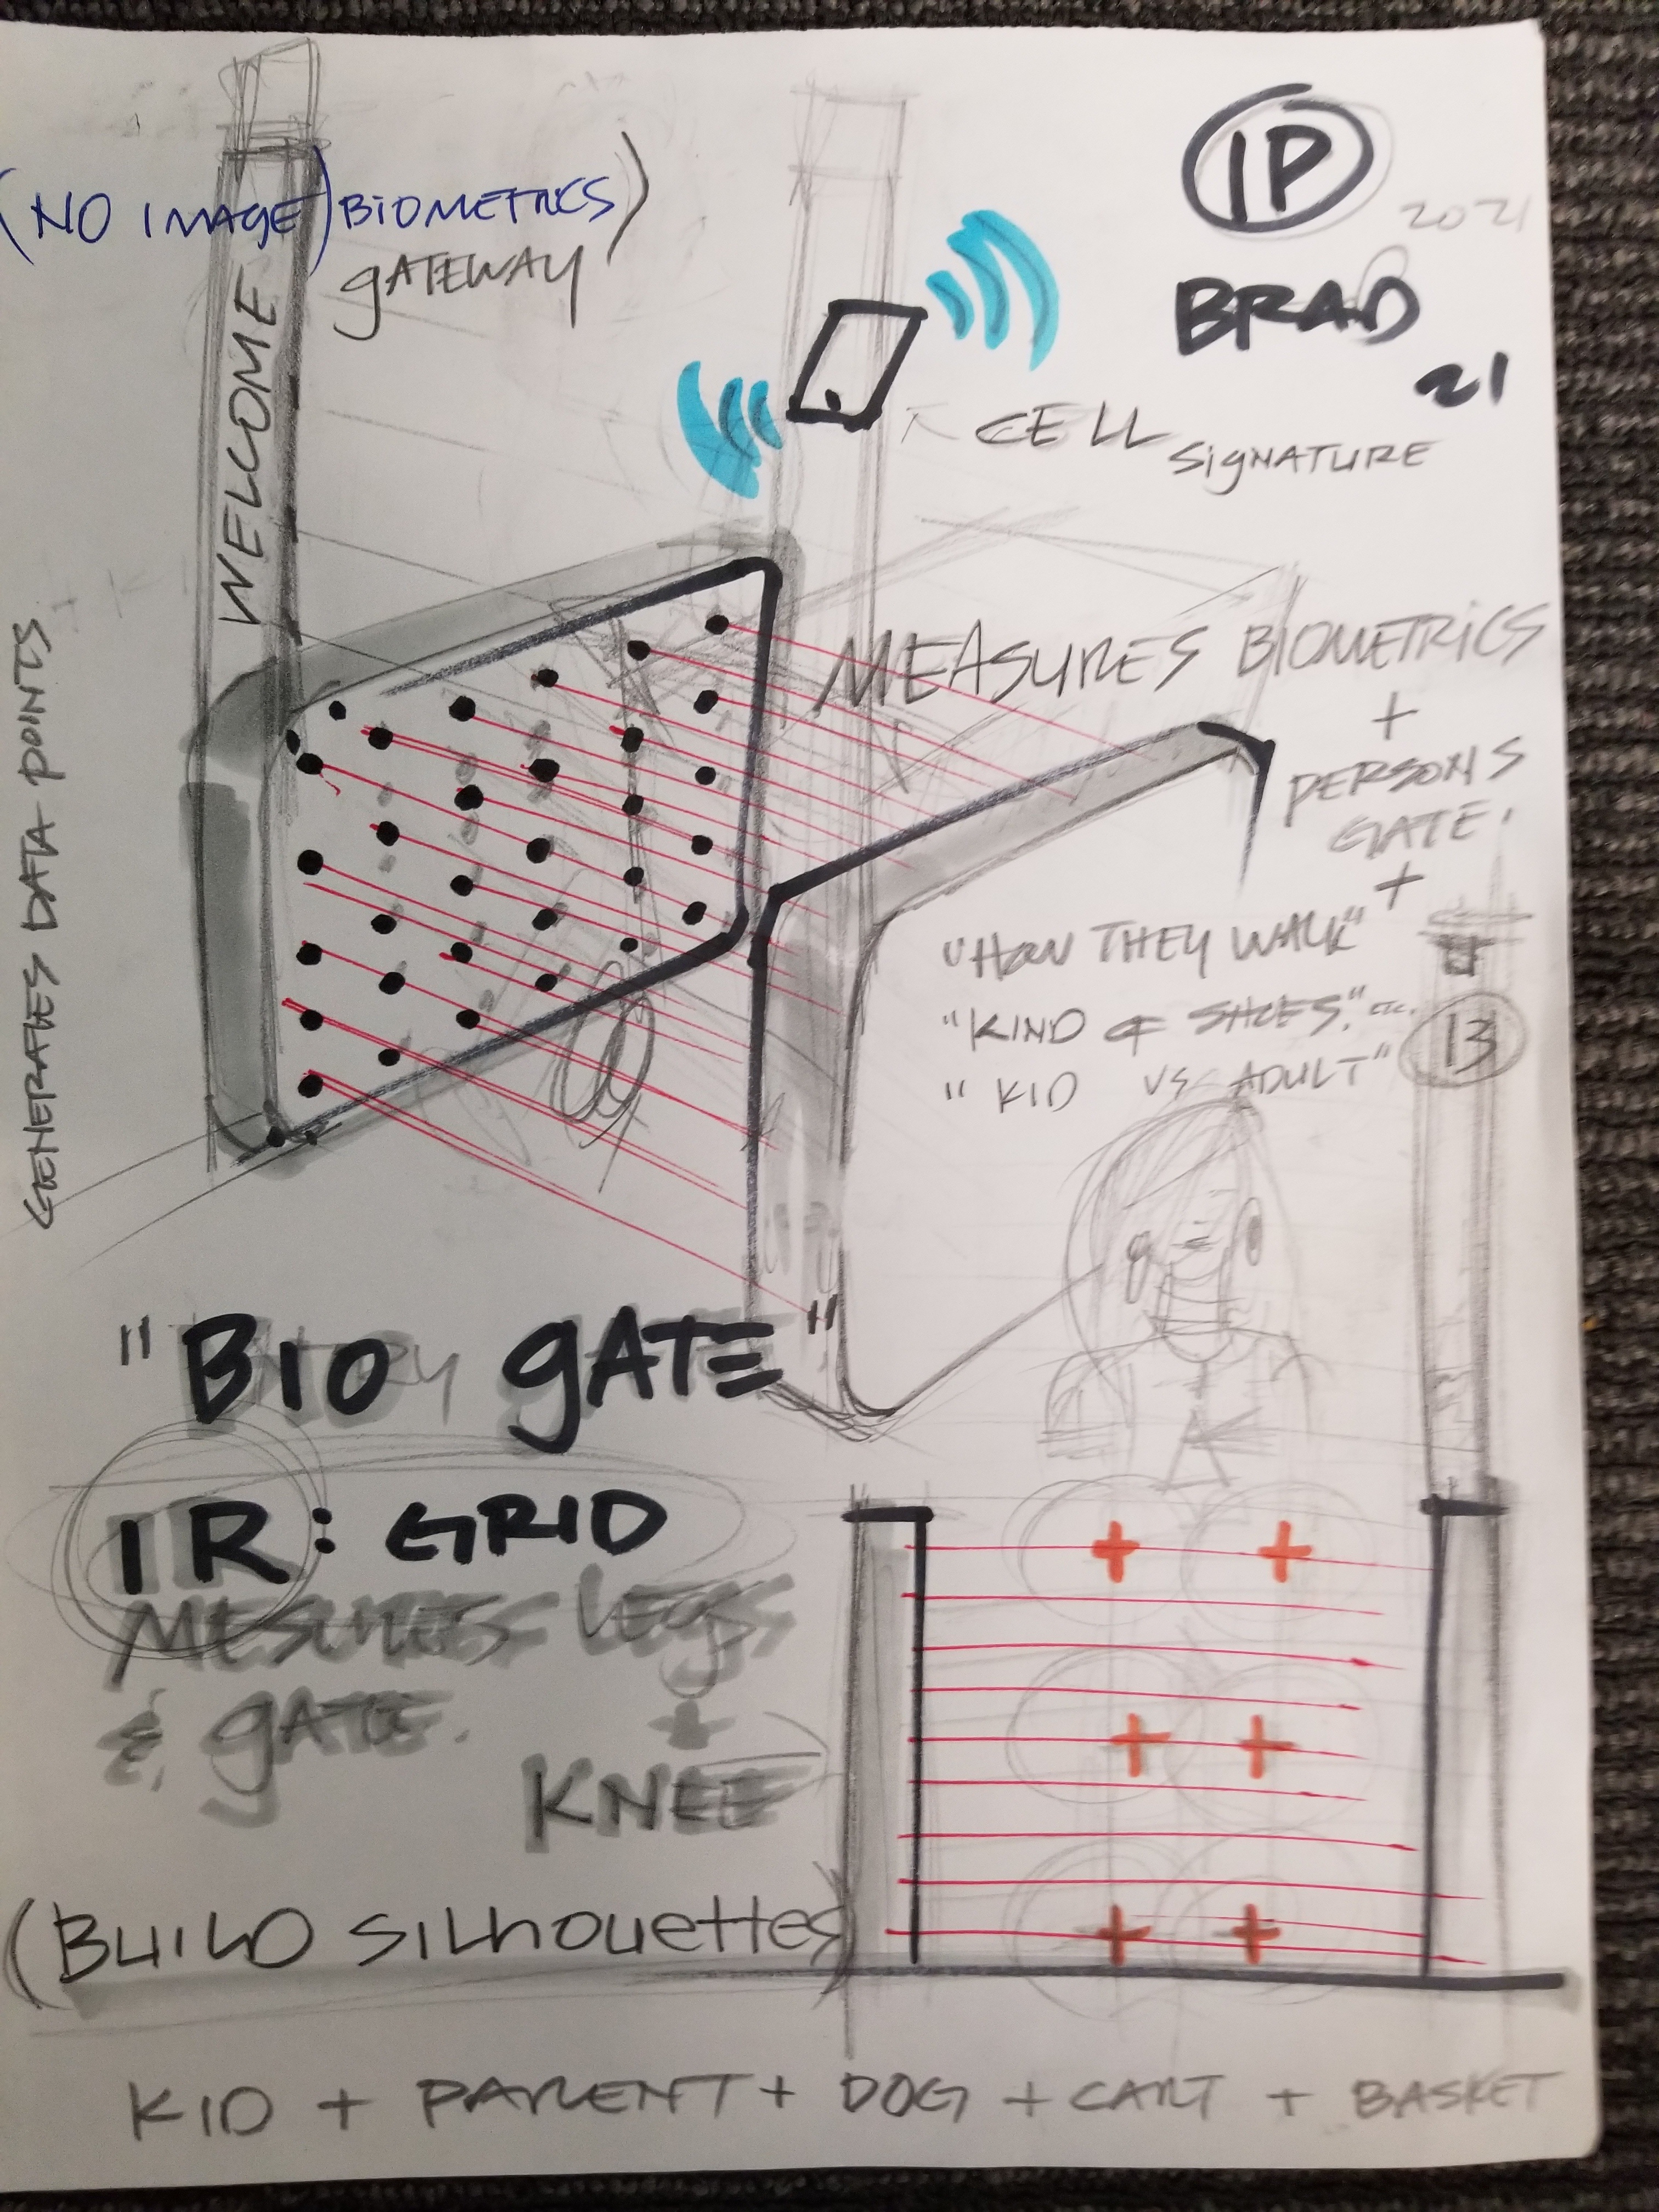 (NO IMAGE) BIOMETRICS)
GATEWAY
WELCOME
IP
2021
BRAD
21
CELL
SIGNATURE
GENERATES DATA POINTS
MEASURES BIOMETRICS
+
PERSONS
GATE.
+
"HOW THEY WALK"
"KIND OF SHOES." ETC.
" KID VS ADULT"
13
"BIO GATE"
IR: GRID
MESURES LEGS
& GATE. +
KNEE
(BUILD SILHOUETTES)
KID + PARENT + DOG + CART + BASKET